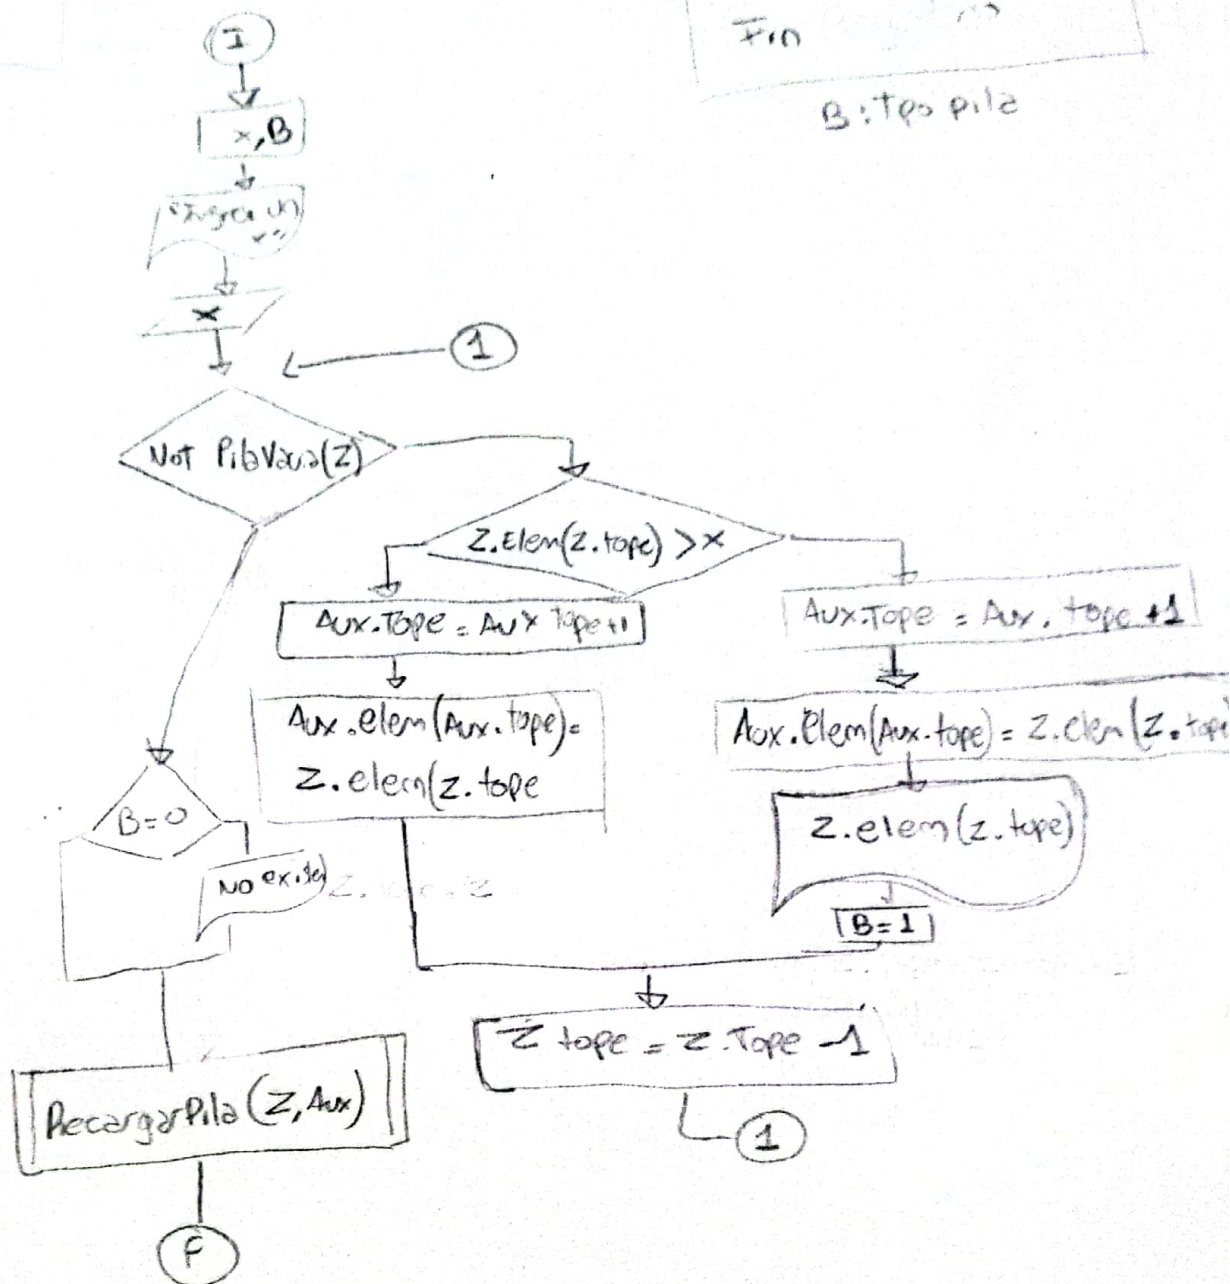 I
Fin
x,B
B: tpo pila
"Ingrea un
x"
x
1
Not PilaVacia(Z)
Z.Elem(Z.tope) > x
Aux.Tope = Aux tope+1
Aux.Tope = Aux. tope +1
Aux.elem(Aux.tope)=
Z.elem(z.tope
Aux.Elem(Aux.tope) = Z.elem(Z.tope
B=0
Z.elem(z.tope)
No existe
B=1
Z tope = Z.Tope -1
RecargarPila(Z,Aux)
1
F